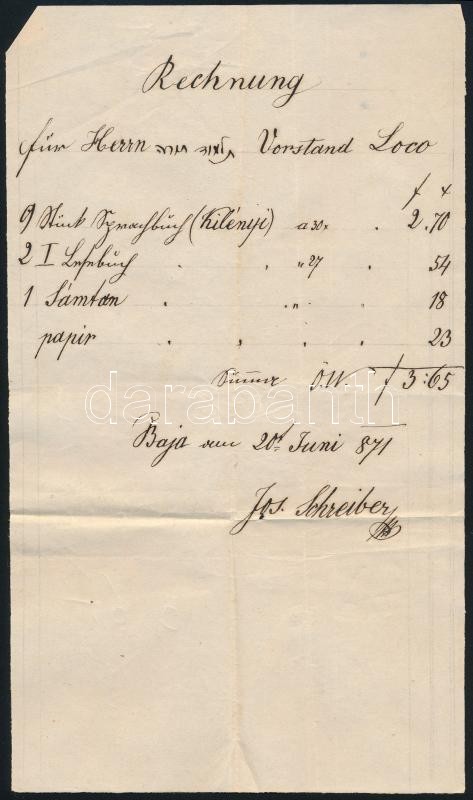 Rechnung
für Herrn תלמוד תורה Vorstand Loco
f x
9 Stück Sprachbuch (Kilényi) a 30x . 2.70
2 I Lesebuch . . " 27 . 54
1 Sámtan . . " . . 18
papir . . . . 23
Summe Ö.W. f 3:65
Baja am 20t Juni 871
Jos. Schreiber
darabanth